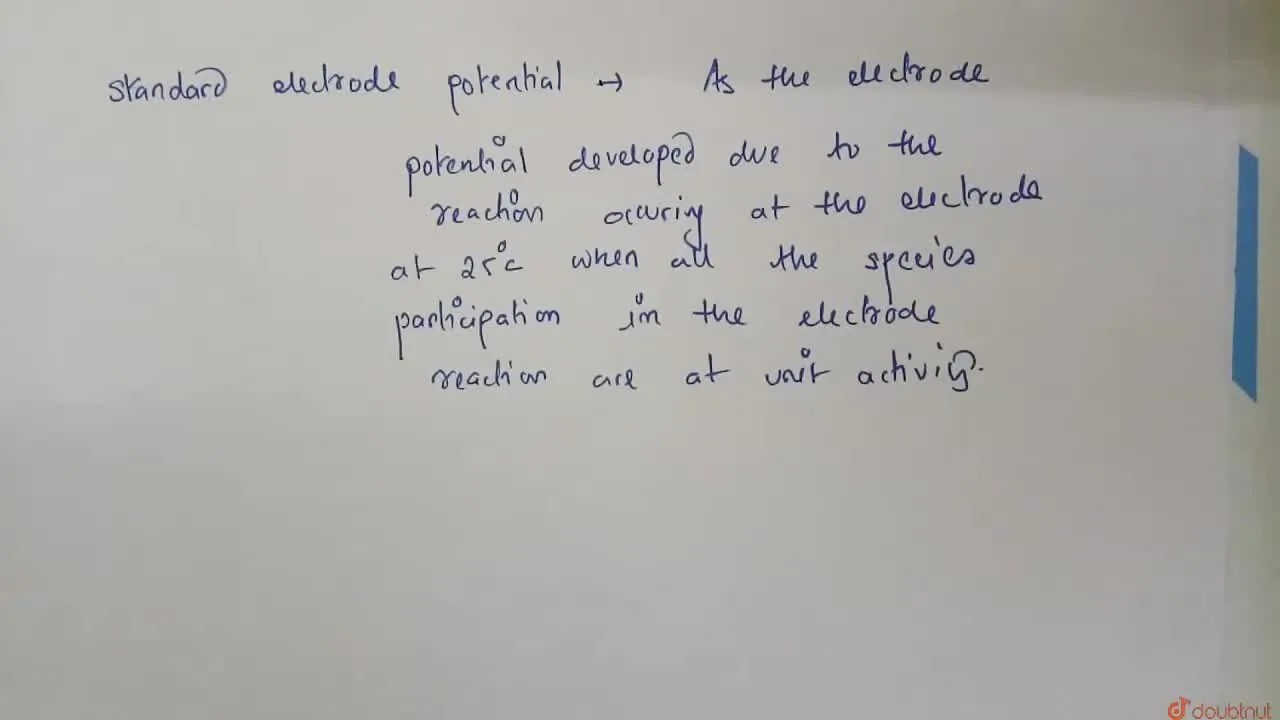 standard electrode potential → As the electrode
potential developed due to the
reaction occuring at the electrode
at 25°c when all the species
participation in the electrode
reaction are at unit activity.
doubtnut